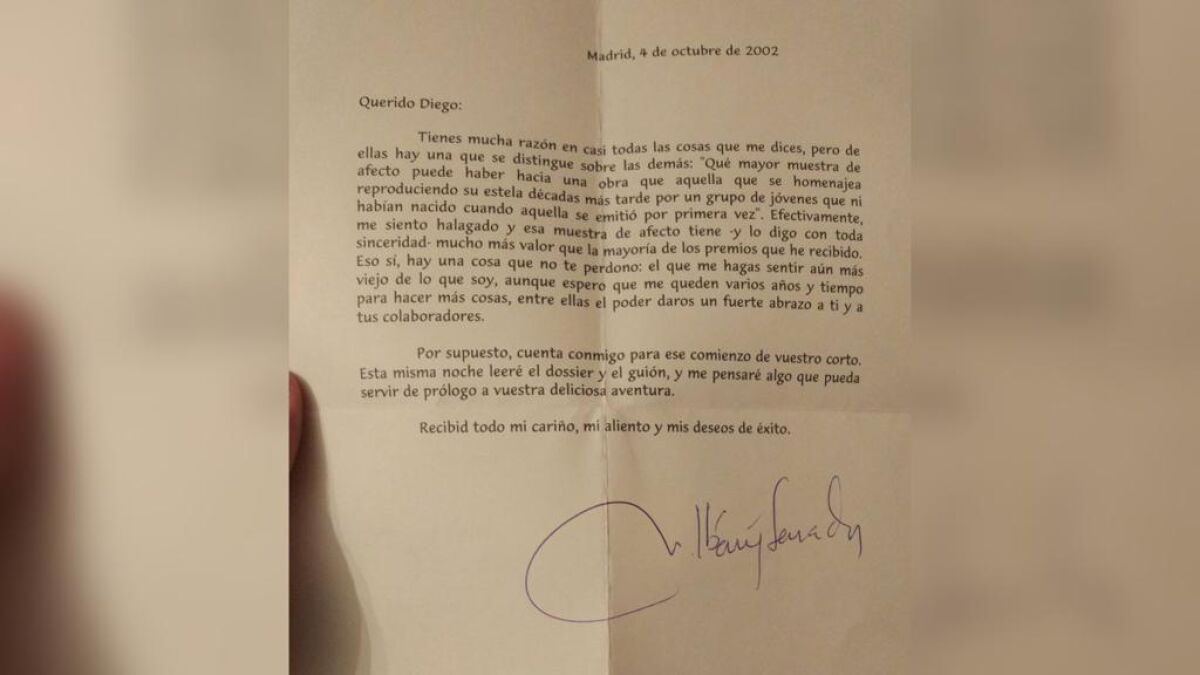 Madrid, 4 de octubre de 2002
Querido Diego:
Tienes mucha razón en casi todas las cosas que me dices, pero de
ellas hay una que se distingue sobre las demás: "Qué mayor muestra de
afecto puede haber hacia una obra que aquella que se homenajea
reproduciendo su estela décadas más tarde por un grupo de jóvenes que ni
habían nacido cuando aquella se emitió por primera vez". Efectivamente,
me siento halagado y esa muestra de afecto tiene -y lo digo con toda
sinceridad- mucho más valor que la mayoría de los premios que he recibido.
Eso sí, hay una cosa que no te perdono: el que me hagas sentir aún más
viejo de lo que soy, aunque espero que me queden varios años y tiempo
para hacer más cosas, entre ellas el poder daros un fuerte abrazo a ti y a
tus colaboradores.
Por supuesto, cuenta conmigo para ese comienzo de vuestro corto.
Esta misma noche leeré el dossier y el guión, y me pensaré algo que pueda
servir de prólogo a vuestra deliciosa aventura.
Recibid todo mi cariño, mi aliento y mis deseos de éxito.